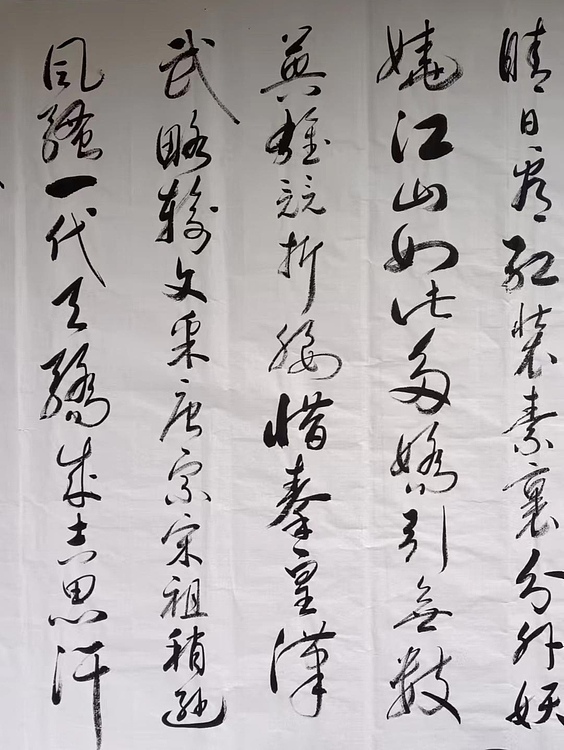 晴日看红装素裹分外妖
娆江山如此多娇引無数
英雄競折腰惜秦皇漢
武略输文采唐宗宋祖稍逊
风骚一代天骄成吉思汗